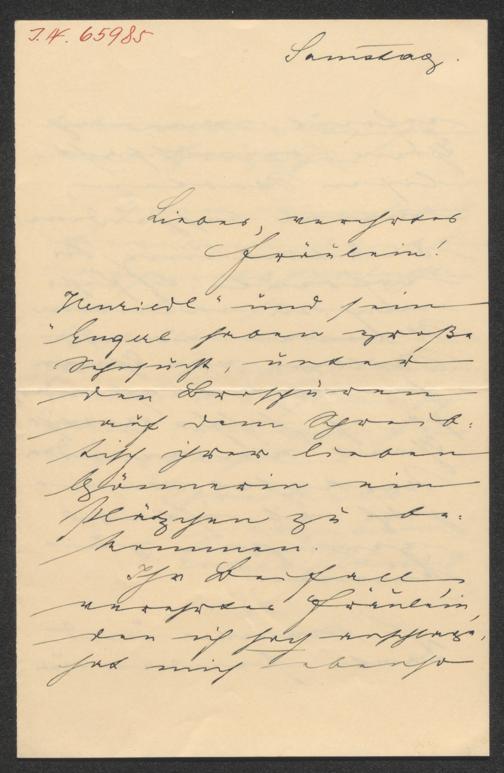 J.N. 65985
Samstag.
Liebes, verehrtes
Fräulein!
Henriedl" und sein
"Engerl haben große
Sehnsucht, unter
den Broschüren
auf dem Schreib-
tisch ihrer lieben
Gönnerin ein
Plätzchen zu be-
kommen.
Ihr Beifall
verehrtes Fräulein,
den ich hoch anschlage,
hat mich ebenso